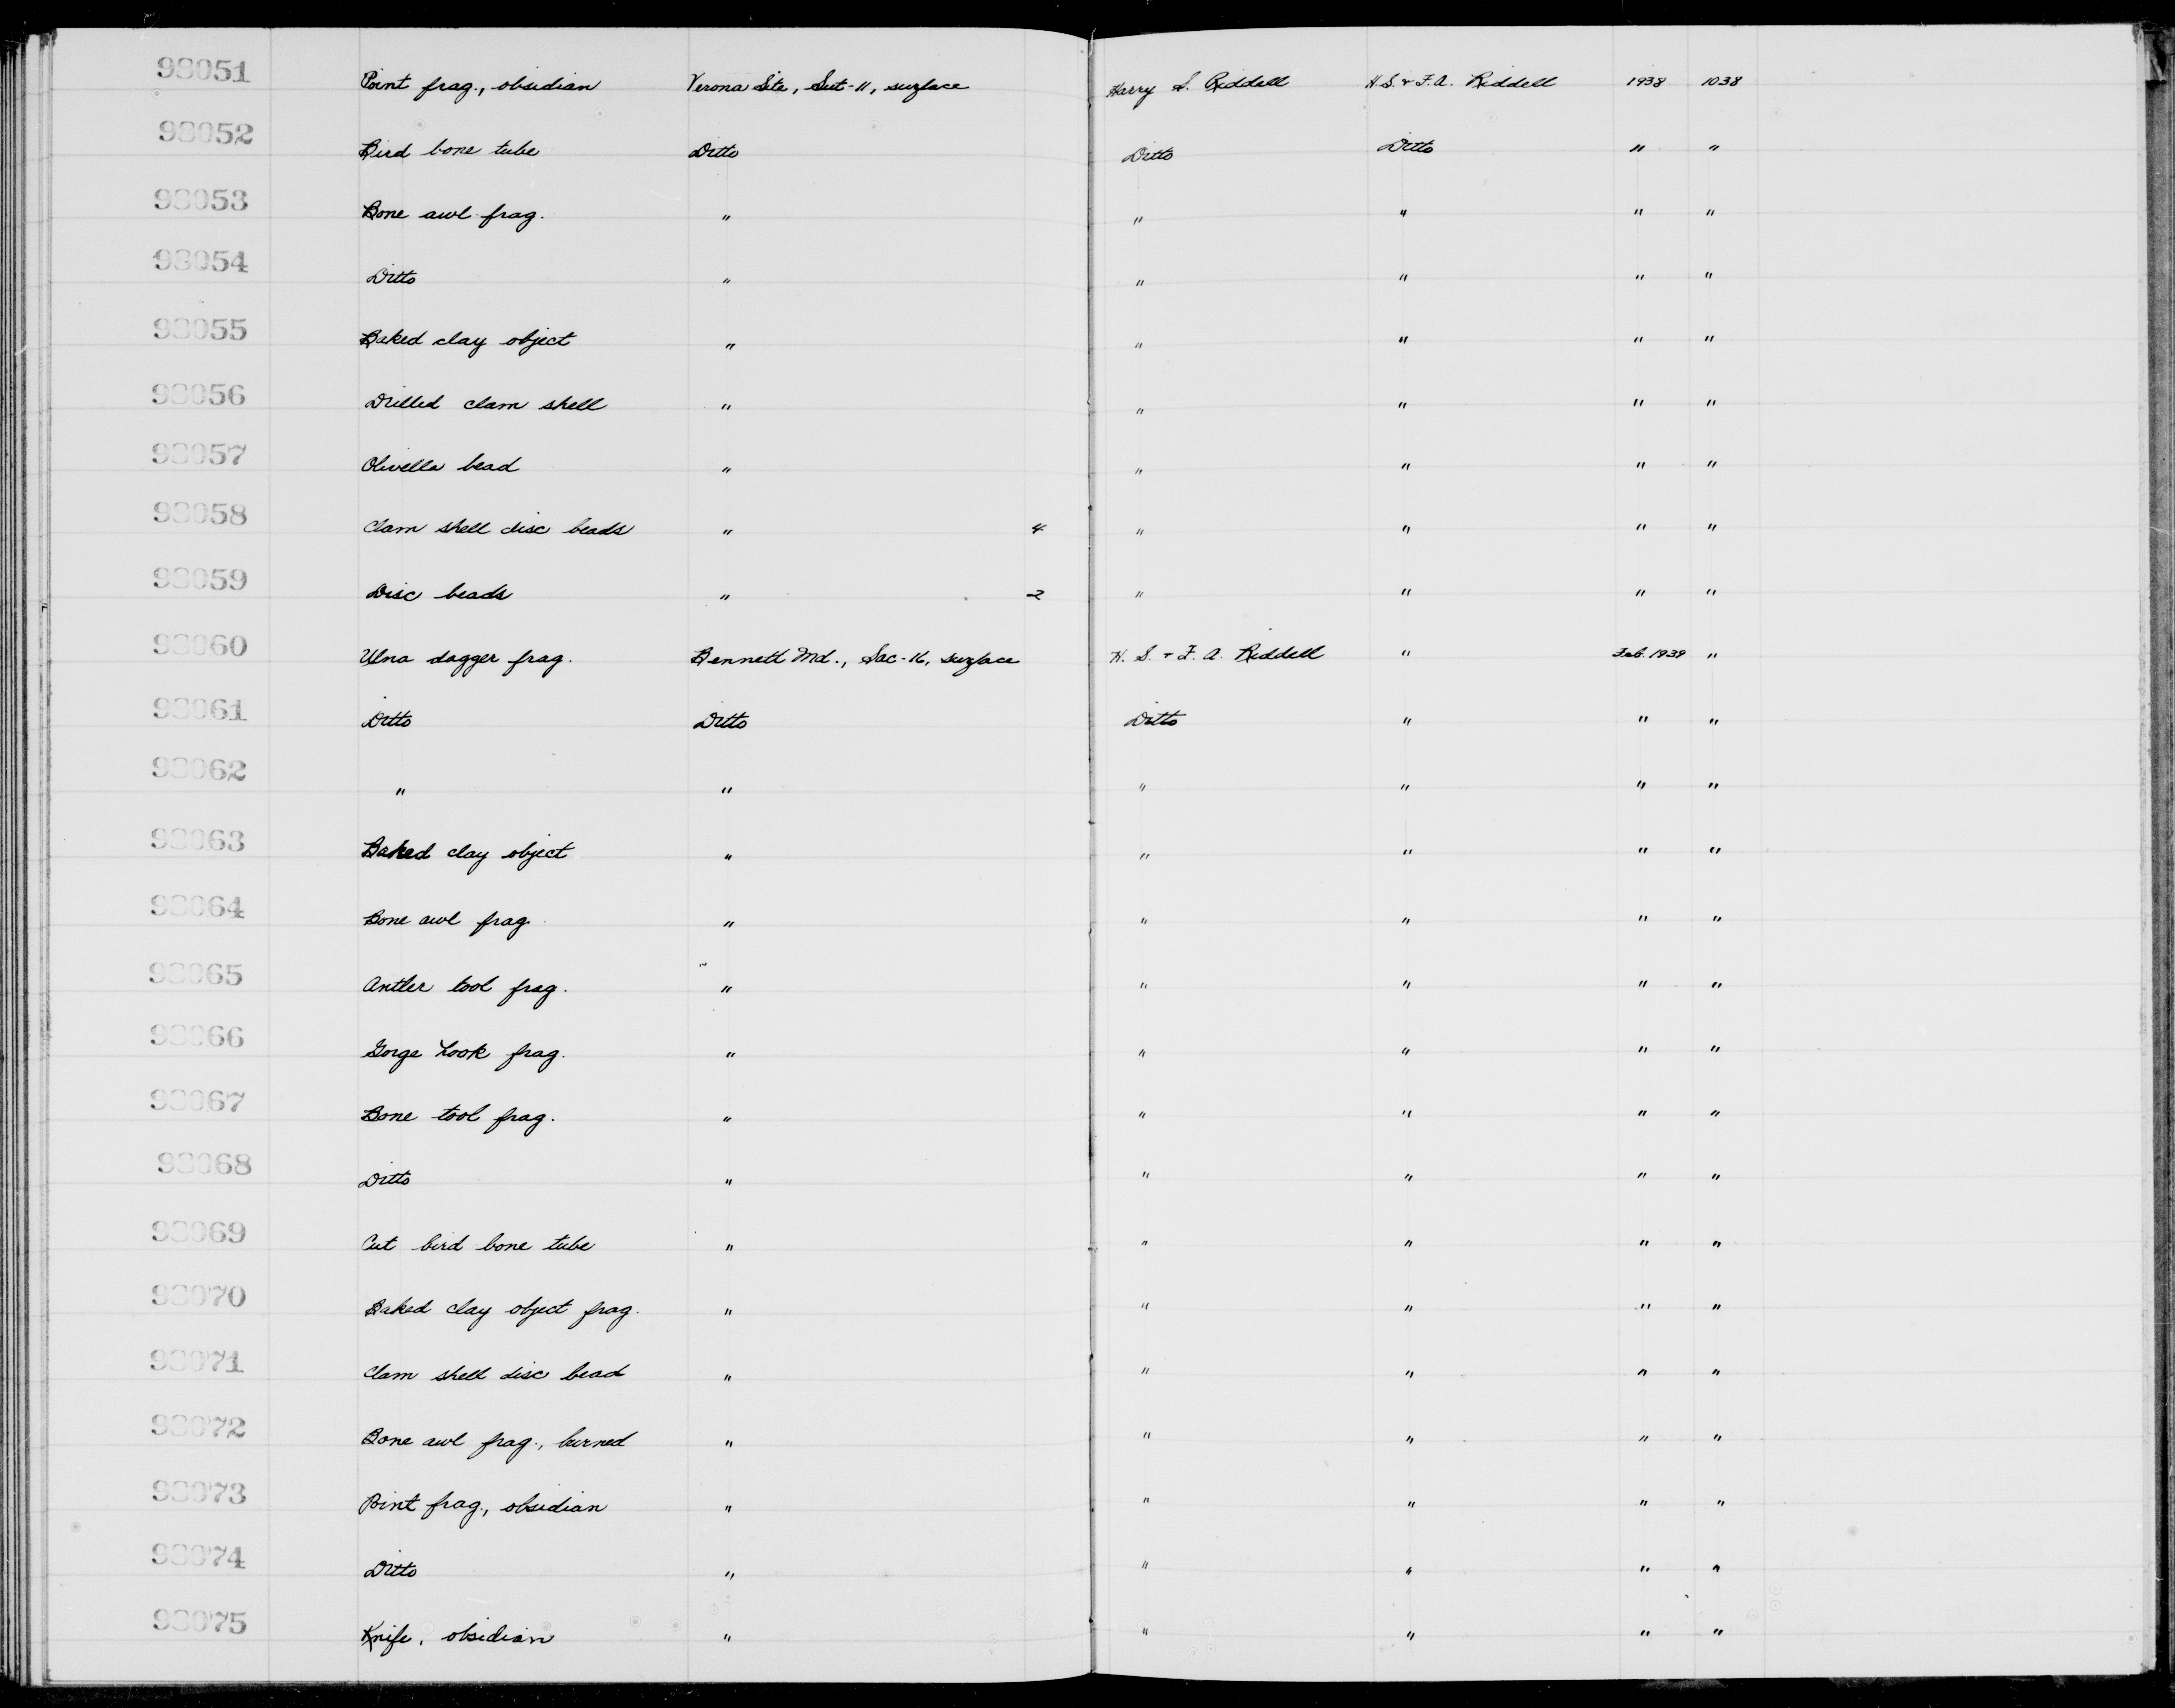 93051 Point frag., obsidian Verona Site, Sut-11, surface Harry S. Riddell H.S. + F.A. Riddell 1938 1038
93052 Bird bone tube Ditto Ditto Ditto " "
93053 Bone awl frag. " " " " "
93054 Ditto " " " " "
93055 Baked clay object " " " " "
93056 Drilled clam shell " " " " "
93057 Olivella bead " " " " "
93058 Clam shell disc beads " 4 " " " "
93059 Disc beads " 2 " " " "
93060 Ulna dagger frag. Bennett Md., Sac-16, surface H. S. + F. A. Riddell " Feb. 1939 "
93061 Ditto Ditto Ditto " " "
93062 " " " " " "
93063 Baked clay object " " " " "
93064 Bone awl frag. " " " " "
93065 Antler tool frag. " " " " "
93066 Gorge hook frag. " " " " "
93067 Bone tool frag. " " " " "
93068 Ditto " " " " "
93069 Cut bird bone tube " " " " "
93070 Baked clay object frag. " " " " "
93071 Clam shell disc bead " " " " "
93072 Bone awl frag., burned " " " " "
93073 Point frag., obsidian " " " " "
93074 Ditto " " " " "
93075 Knife, obsidian " " " " "